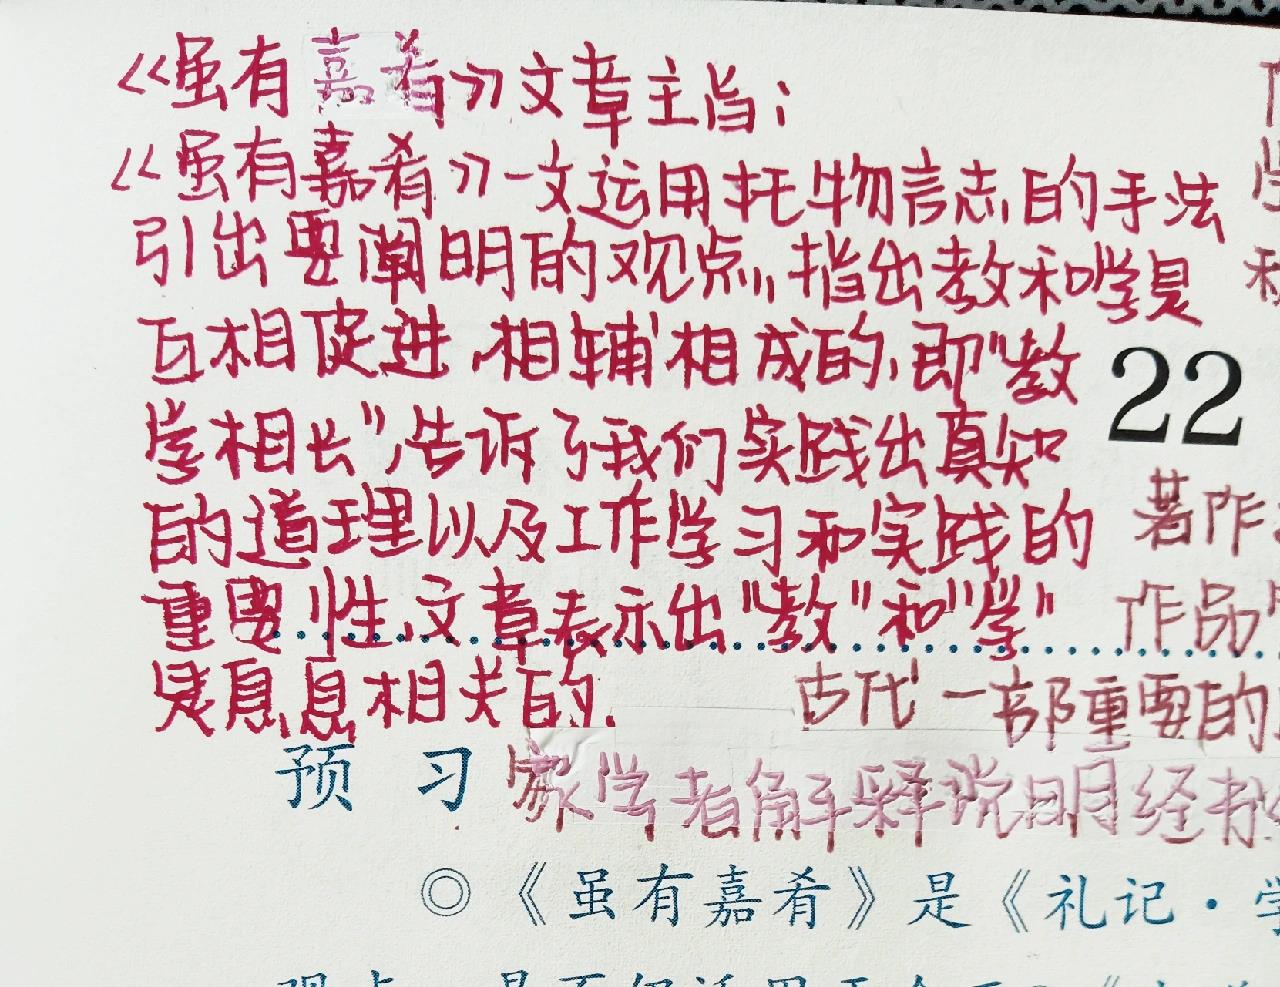 《虽有嘉肴》文章主旨：
《虽有嘉肴》一文运用托物言志的手法
引出要阐明的观点,指出教和学是
互相促进,相辅相成的,即"教
学相长",告诉了我们实践出真知
的道理以及工作学习和实践的
重要性,文章表示出"教"和"学"
是息息相关的.
22
著作
作品
古代一部重要的
预 习
家学者解释说明经书
◎《虽有嘉肴》是《礼记·学